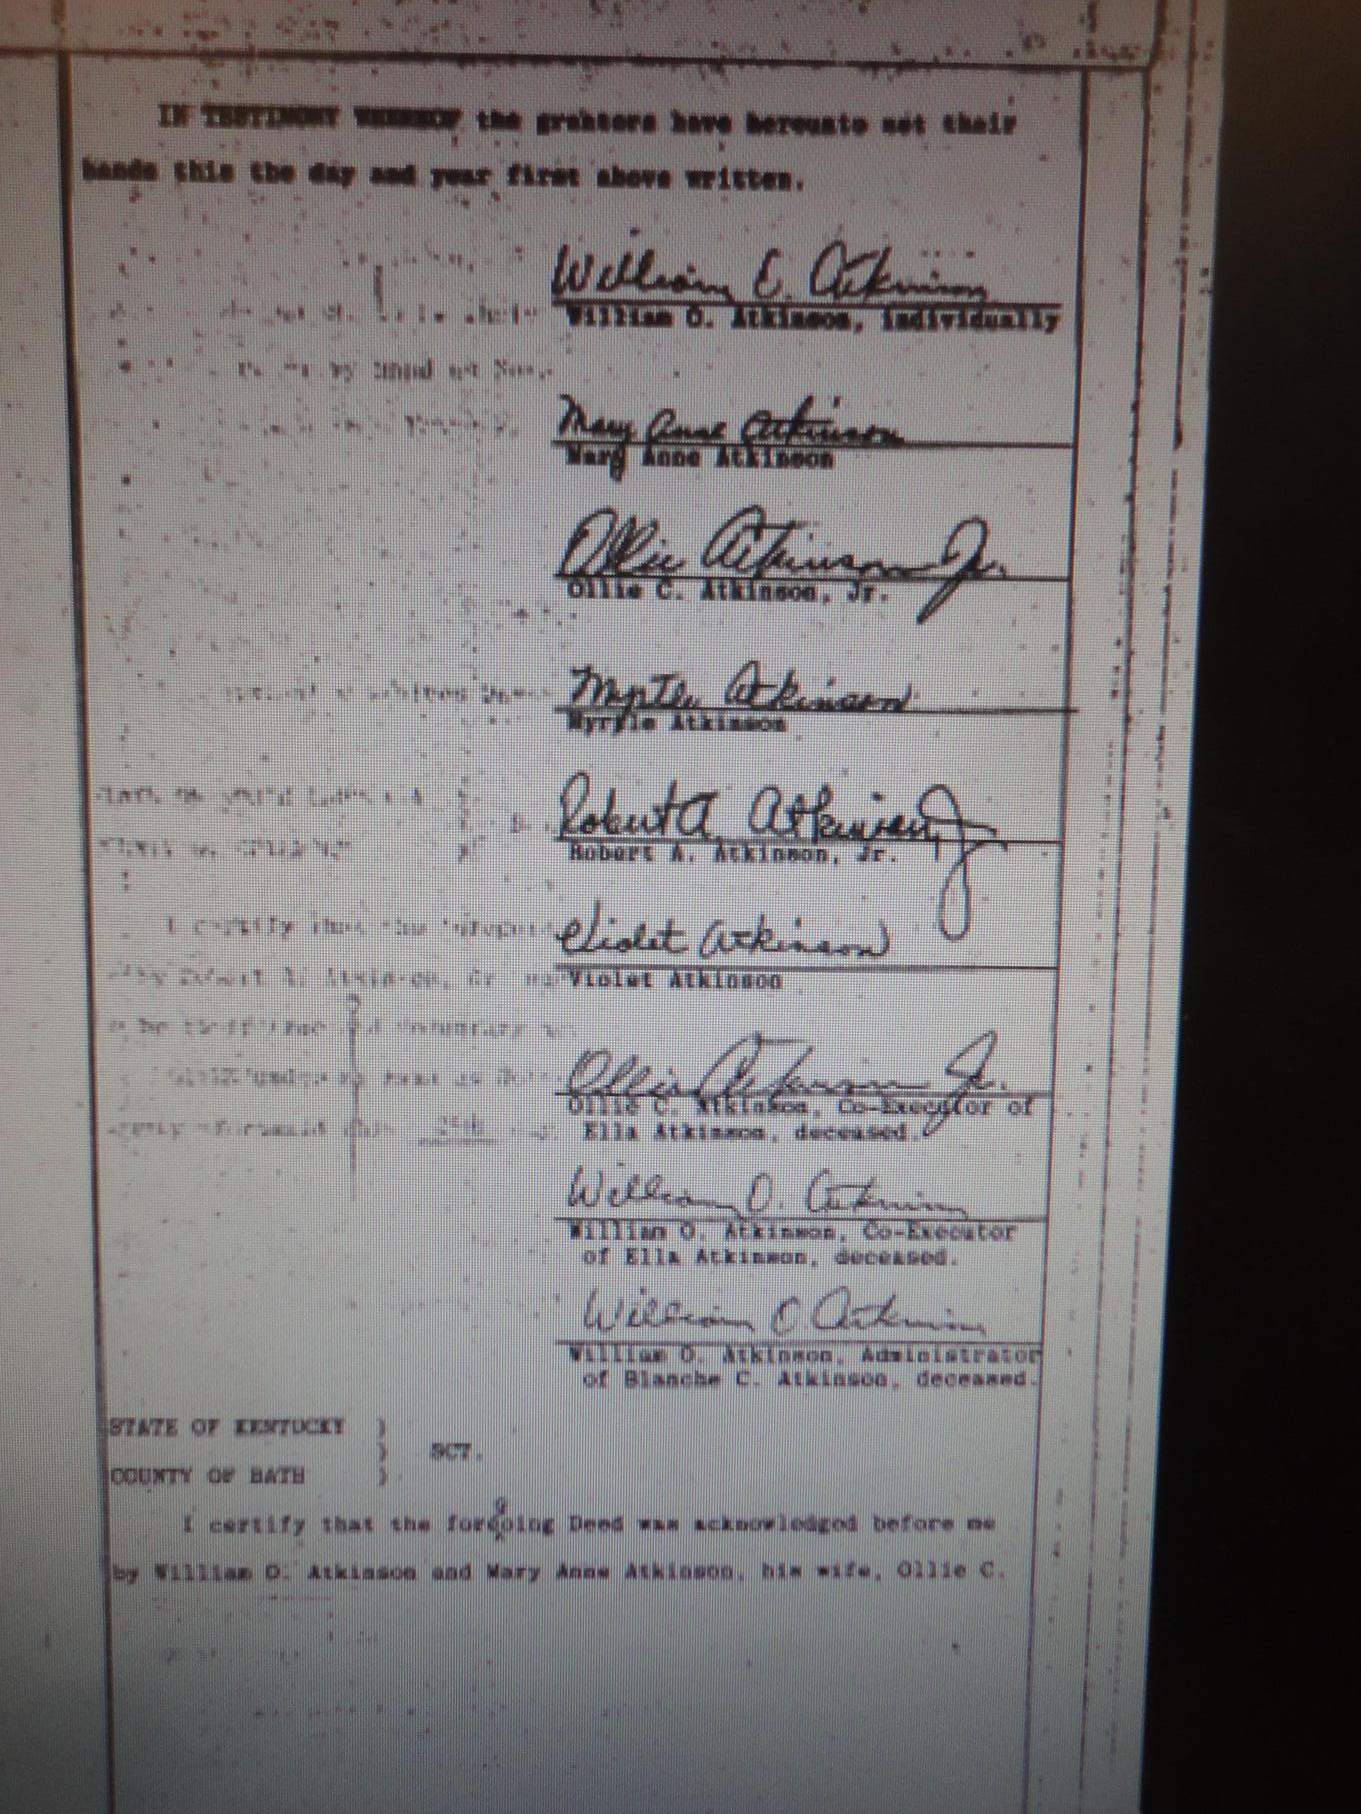 IN TESTIMONY WHEREOF the grantors have hereunto set their
hands this the day and year first above written.
William E. Atkinson
William O. Atkinson, Individually
Mary Anne Atkinson
Mary Anne Atkinson
Ollie Atkinson Jr.
Ollie C. Atkinson, Jr.
Myrtle Atkinson
Myrtle Atkinson
Robert A. Atkinson, Jr
Robert A. Atkinson, Jr.
Violet Atkinson
Violet Atkinson
Ollie Atkinson Jr.
Ollie C. Atkinson, Co-Executor of
Ella Atkinson, deceased.
William O. Atkinson
William O. Atkinson, Co-Executor
of Ella Atkinson, deceased.
William O Atkinson
William O. Atkinson, Administrator
of Blanche C. Atkinson, deceased.
STATE OF KENTUCKY )
) SCT.
COUNTY OF BATH )
I certify that the foregoing Deed was acknowledged before me
by William O. Atkinson and Mary Anne Atkinson, his wife, Ollie C.